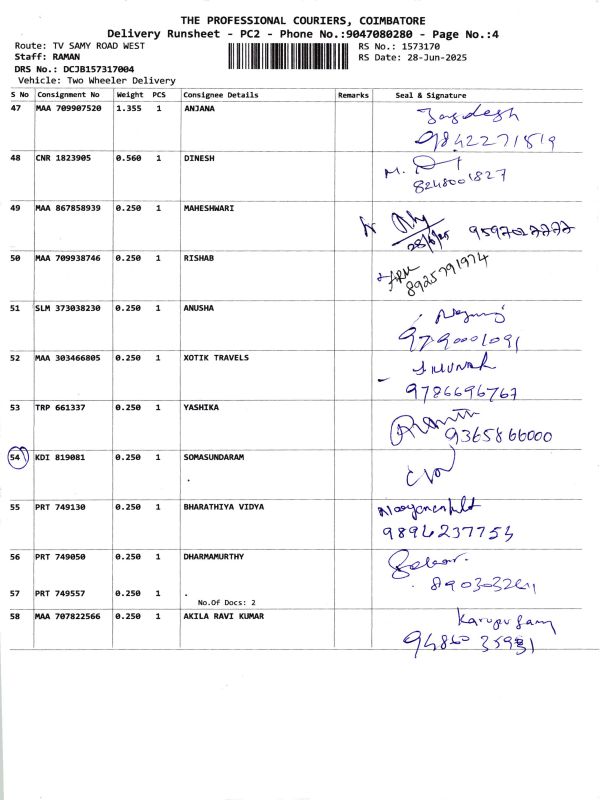 THE PROFESSIONAL COURIERS, COIMBATORE
Delivery Runsheet - PC2 - Phone No.:9047080280 - Page No.:4
Route: TV SAMY ROAD WEST
RS No.: 1573170
Staff: RAMAN
RS Date: 28-Jun-2025
DRS No.: DCJB157317004
Vehicle: Two Wheeler Delivery
S No Consignment No Weight PCS Consignee Details Remarks Seal & Signature
47 MAA 709907520 1.355 1 ANJANA
Jagdesh
9842271819
48 CNR 1823905 0.560 1 DINESH
M.
8248001827
49 MAA 867858939 0.250 1 MAHESHWARI
28/6/25 9597027777
50 MAA 709938746 0.250 1 RISHAB
8925791974
51 SLM 373038230 0.250 1 ANUSHA
9790001091
52 MAA 303466805 0.250 1 XOTIK TRAVELS
9786696767
53 TRP 661337 0.250 1 YASHIKA
9365866000
54 KDI 819081 0.250 1 SOMASUNDARAM
.
55 PRT 749130 0.250 1 BHARATHIYA VIDYA
9894237754
56 PRT 749050 0.250 1 DHARMAMURTHY
57 PRT 749557 0.250 1 .
No.Of Docs: 2
58 MAA 707822566 0.250 1 AKILA RAVI KUMAR
Karupusamy